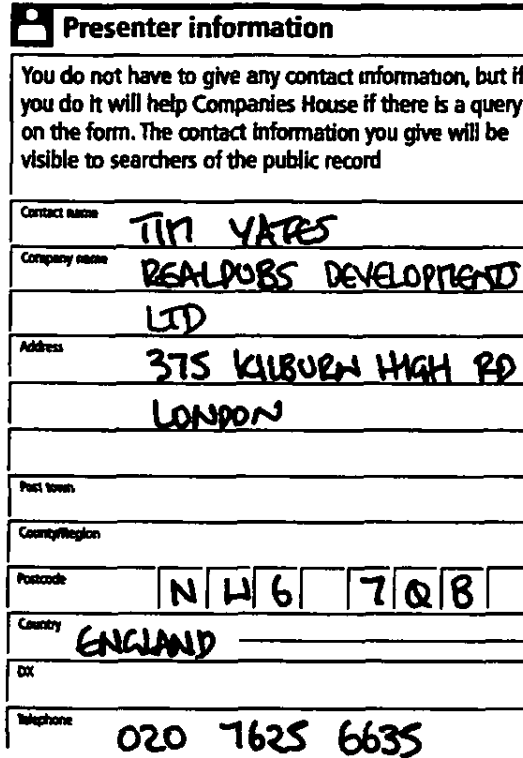 Presenter information
You do not have to give any contact information, but if
you do it will help Companies House if there is a query
on the form. The contact information you give will be
visible to searchers of the public record
Contact name TIM YATES
Company name REALPUBS DEVELOPMENTS
LTD
Address 375 KILBURN HIGH RD
LONDON
Post town
County/Region
Postcode NW6 7QB
Country ENGLAND
DX
Telephone 020 7625 6635